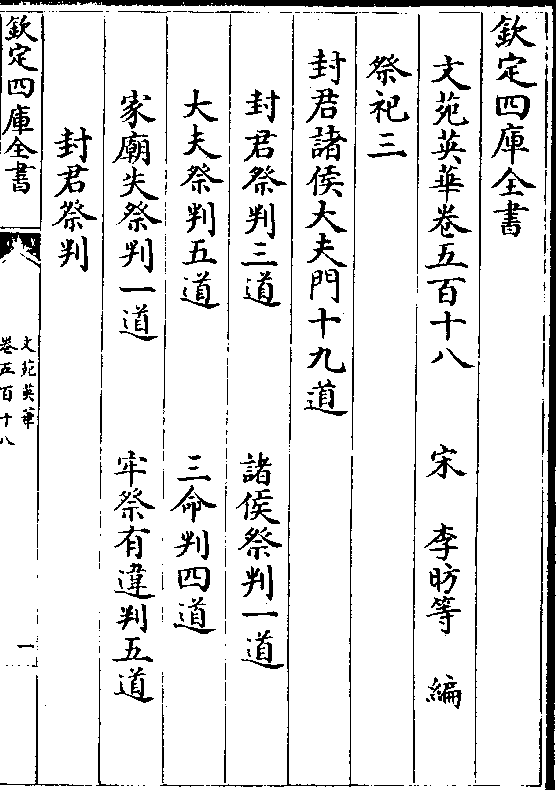 欽定四庫全書
文苑英華卷五百十八　宋　李昉等　編
祭祀三
封君諸侯大夫門十九道
封君祭判三道　諸侯祭判一道
大夫祭判五道　三命判四道
家廟失祭判一道　牢祭有違判五道
封君祭判
欽定四庫全書
文苑英華
卷五百十八
一